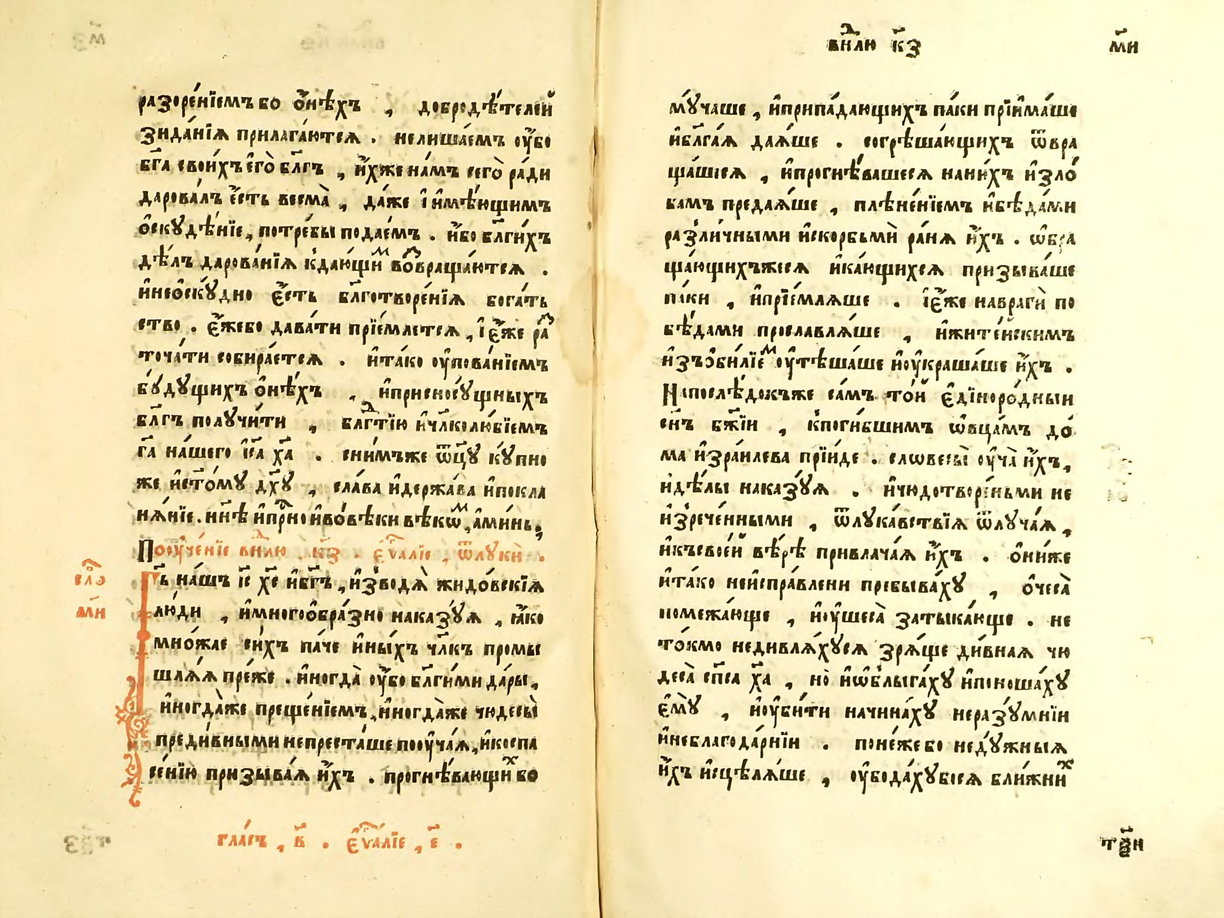 разоре́нїемъ бо ѻ҆нѣ́хъ , добродѣ́телей
зида́нїѧ прилага́ютсѧ . нелиша́емъ ᲂу҆́бо
бг҃а свои́хъ є҆го̀ бл҃гъ , и҆́хже на́мъ сего̀ ра́ди
дарова́лъ є҆́сть весма̀ , да́же и҆ и҆мѣ́ющимъ
ѻ҆скꙋдѣ́нїе , потре́бы подае́мъ . и҆́бо бл҃ги́хъ
дѣ́лъ дарова́нїѧ к̾даю́щиⷨ во́звраща́ютсѧ .
и҆неѻ҆скꙋ́дно є҆́сть бл҃готворе́нїѧ бога́ть
ство . є҆́жебо дава́ти прїе́млетсѧ , і҆ є҆́же раⷭ
точа́ти собира́етсѧ . и҆та́ко ᲂу҆пова́нїемъ
бꙋ́дꙋщихъ ѻ҆́нѣхъ , и҆присносꙋ́щныхъ
бл҃гъ полꙋчи́ти , бл҃гⷣтїю и҆чл҃колю́бїемъ
гⷭ҇а на́шего і҆с҃а хⷭ҇а . сни́мъже ѿц҃ꙋ кꙋ́пно
же и҆ст҃о́мꙋ дх҃ꙋ , сла́ва и҆держа́ва и҆покла
нѧ́нїе . нн҃ѣ и҆при́сно и҆во́вѣки вѣкѡ́ⷨ , а҆ми́нь .
Поꙋче́нїе в̾нⷣлю , к҃з . є҆ѵⷢ҇алїе , ѿлꙋкѝ .
сло́
м҃и
Гⷭ҇ь на́шъ і҆с҃ х҃е и҆бг҃ъ , и҆зводѧ̀ жидо́вскїѧ
лю́ди , и҆многоѻбра́зно наказꙋ́ѧ , ꙗ҆́ко
мно́жае си́хъ па́че и҆ны́хъ чл҃къ промы
шлѧ́ѧ пре́же . и҆ногда̀ ᲂу҆́бо бл҃ги́ми да́ры ,
и҆ногда́же преще́нїемъ , и҆ногда́же чюдесы̀
преди́вными непреста́ше поꙋча́ѧ , и҆коспа
се́нїю призыва́ѧ и҆́хъ . прогнѣ́вающиⷯ бо
гла́съ , в҃ . є҆ѵⷢ҇алїе , є҃ .
в̾нⷣлю к҃з
м҃и
мꙋ́чаше , и҆припа́дающихъ па́ки прїи́маше
и҆бл҃га́ѧ даѧ́ше . согрѣша́ющихъ ѿвра
ща́шесѧ , и҆прогнѣ́вашесѧ нани́хъ и҆зло́
бамъ предаѧ́ше , плѣне́нїемъ и҆бѣда́ми
разли́чными и҆ско́рбьмѝ ра́нѧ и҆́хъ . ѡ҆бра
ща́ющихъжесѧ и҆ка́ющихсѧ призыва́ше
па́ки , и҆прїе́млѧше . і҆ є҆́же навраги̑ по
бѣ́дами прославлѧ́ше , и҆жите́искимъ
и҆зъѻби́лїеⷨ ᲂу҆тѣша́ше и҆ᲂу҆краша́ше и҆́хъ .
Напослѣ́докъже са́мъ то́й є҆диноро́дныи
сн҃ъ бж҃їи , кпоги́бшимъ ѻ҆вца́мъ до́
ма и҆зра́илева прїи́де . словесы̀ ᲂу҆ча̀ и҆́хъ ,
и҆дѣ́лы наказꙋ́ѧ . и҆чюдотворе́ньми не
и҆зрече́нными , ѿлꙋка́вствїѧ ѿлꙋча́ѧ ,
и҆къ свое́й вѣ́рѣ привлача́ѧ и҆́хъ . ѻ҆ни́же
и҆та́ко неиспра́влени пребыва́хꙋ , ѻ҆чеса̀
помежа́юще , и҆ᲂу҆шеса̀ затыка́юще . не
то́кмо недивлѧ́хꙋсѧ зрѧ́ще ди́внаѧ чю
деса̀ сп҃са хⷭ҇а , но̀ и҆ѡ҆блыга́хꙋ и҆поноша́хꙋ
є҆мꙋ̀ , и҆ᲂу҆би́ти начина́хꙋ неразꙋ́мнїи
и҆неблагода́рнїи . поне́жебо недꙋ́жныѧ
и҆́хъ и҆сцѣлѧ́ше , ᲂу҆бода́хꙋбосѧ бли́жниⷯ
тм҃и